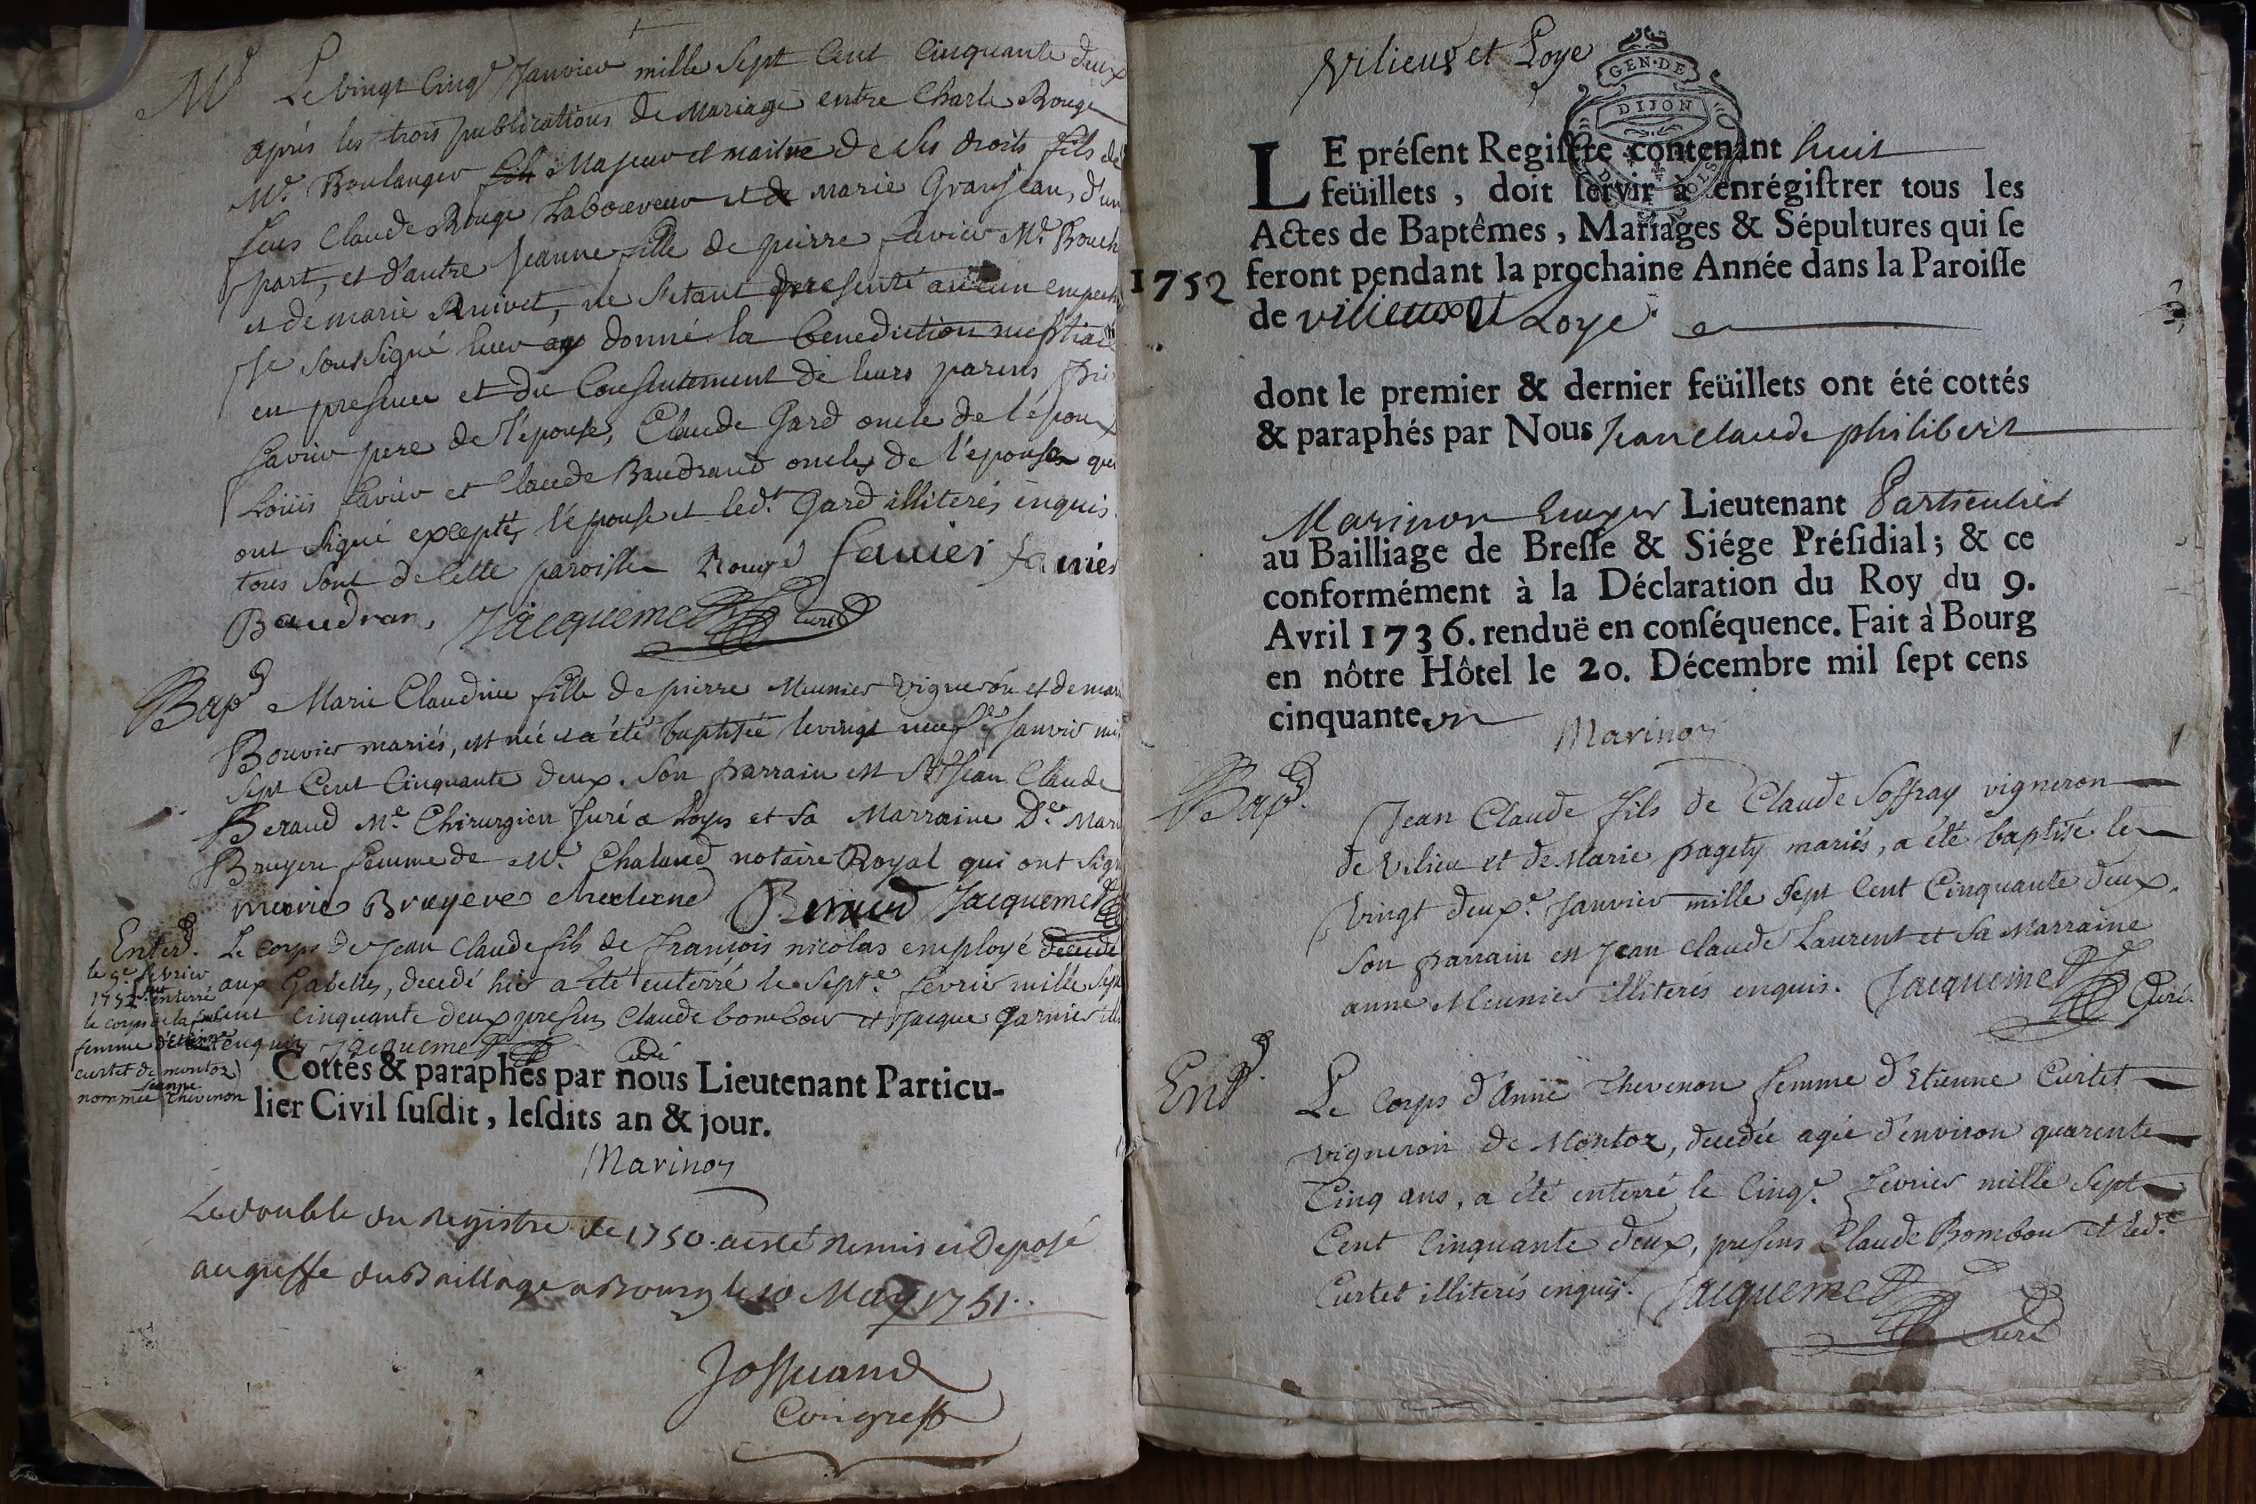 Mr Le vingt Cinqe Janvier mille Sept Cent Cinquante deux
après les trois publications de Mariage entre Charle Rouge
Me. Boulanger fils Majeur et maitre de Ses droits fils de
feus Claude Rouge Laboureur et de Marie Granjean, d'un
part, et d'autre Jeanne fille de pierre favier Md. Bouch
et de marie Ruivet, ne S'etant presenté aucun empech
Je Soussigné leur ay donné la benediction nuptiale
en presence et du Consentement de leurs parens
favier pere de l'épouse, Claude Gard oncle de l'époux
Loüis favier et Claude Baudrand oncles de l'épouse qui
ont Signé excepté l'épouse et led. Gard illiterés enquis.
tous Sont de Cette paroisse Rouge favier favier
Baudran, Jacquemet Curé
Bapd Marie Claudine fille de pierre Meunier Vigneron et de mari
Bouvier mariés, est née et a été baptisée le vingt neufe Janvier mil
Sept Cent Cinquante deux. Son parrain est Sr Jean Claude
Beraud Me. Chirurgien Juré a Loyes et Sa Marraine De. Mari
Bruyere femme de Me. Chaland notaire Royal qui ont Sign
marie Bruyere Beraud Jacquemet
Enterd. Le corps de Jean Claude fils de françois nicolas employé decede
aux Gabelles, decedé hier a été enterré le Septe. fevrier mille Sept
Cent Cinquante deux presens Claude bombour et Jacque Garnier
enquis Jacquemet Curé
le 5e fevrier
1752 enterré
le corps de la
femme d'Etienne
curtet de montoz
nommée Jeanne
thevenon
Cottés & paraphés par nous Lieutenant Particu-
lier Civil susdit, lesdits an & jour.
Marinon
Le double du Registre de 1750. a esté Remis et Deposé
au greffe du Baillage a Bourg le 10 May 1751.
Vilieux et Loye
GEN·DE
DIJON
LE présent Registre contenant huit
feüillets, doit servir à enrégistrer tous les
Actes de Baptêmes, Mariages & Sépultures qui se
1752 feront pendant la prochaine Année dans la Paroisse
de Vilieux et Loye
dont le premier & dernier feüillets ont été cottés
& paraphés par Nous Jean Claude philibert
Marinon Lieutenant Particulier
au Bailliage de Bresse & Siége Présidial; & ce
conformément à la Déclaration du Roy du 9.
Avril 1736. renduë en conséquence. Fait à Bourg
en nôtre Hôtel le 20. Décembre mil sept cens
cinquante un
Marinon
Bapd. Jean Claude fils de Claude Soffray vigneron
de Vilieu et de Marie pagety mariés, a été baptisé le
Vingt deuxe. Janvier mille Sept Cent Cinquante deux.
Son parrain est Jean Claude Laurent et Sa Marraine
anne Meunier illiterés enquis. Jacquemet Curé.
Entd. Le Corps d'Anne Thevenon femme d'Etienne Curtet
vigneron de Montoz, decedée agée d'environ quarente
Cinq ans, a été enterré le Cinqe. fevrier mille Sept
Cent Cinquante deux, presens Claude Bombou et led.
Curtet illiterés enquis. Jacquemet
Curé